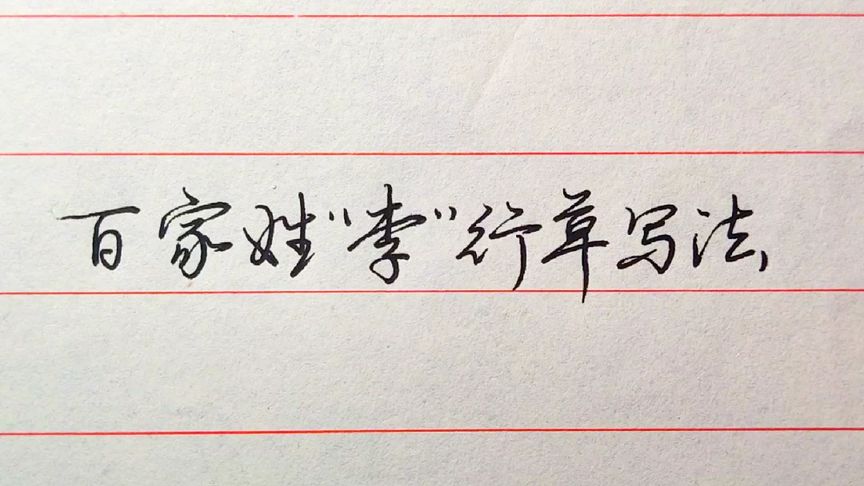 百家姓“李”行草写法